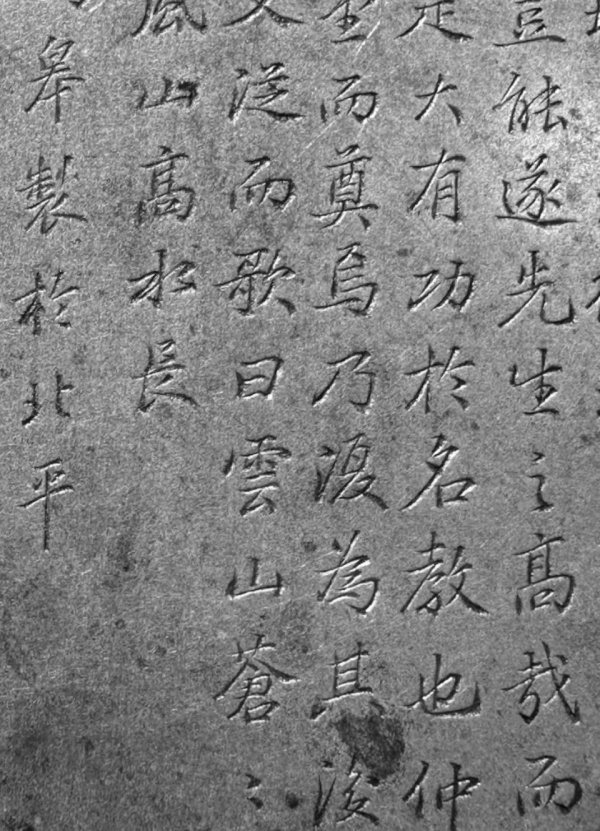 豈能遂先生之髙哉而
是大有功於名教也仲
堂而奠焉乃復為其後
又從而歌曰雲山蒼〻
風山髙水長
皋製於北平